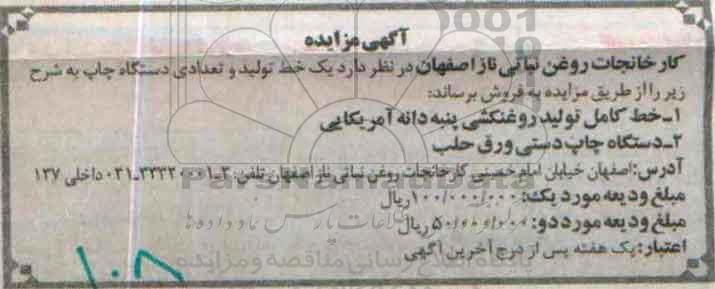 آگهی مزایده
کارخانجات روغن نباتی ناز اصفهان در نظر دارد یک خط تولید و تعدادی دستگاه چاپ به شرح
زیر را از طریق مزایده به فروش برساند:
۱ـ خط کامل تولید روغنکشی پنبه دانه آمریکایی
۲ـ دستگاه چاپ دستی ورق حلب
آدرس: اصفهان خیابان امام خمینی کارخانجات روغن نباتی ناز اصفهان تلفن: ۳ـ۳۳۳۲۰۰۰۱ـ۰۳۱ داخلی ۱۳۷
مبلغ ودیعه مورد یک: ۱۰۰/۰۰۰/۰۰۰ ریال
مبلغ ودیعه مورد دو: ۵۰/۰۰۰/۰۰۰ ریال
اعتبار: یک هفته پس از درج آخرین آگهی
ParsNamadData
پایگاه اطلاع رسانی مناقصه و مزایده
۱۰۸